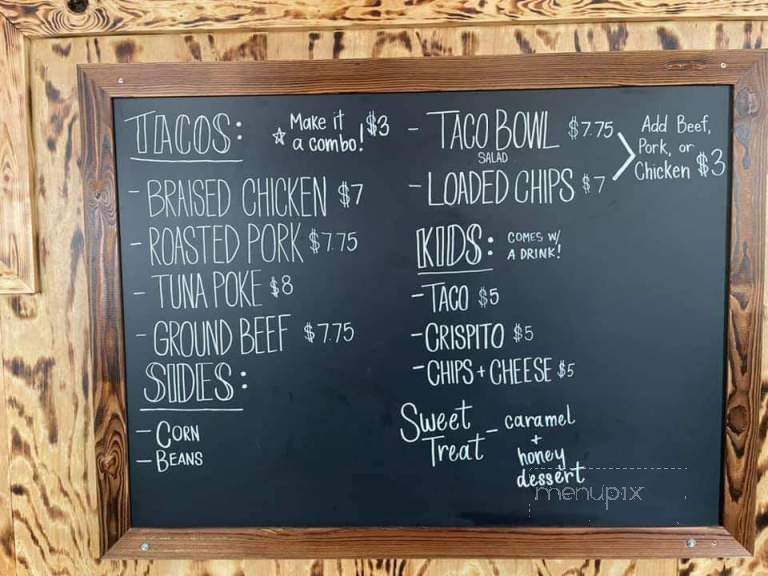 TACOS:
☆ Make it $3
a combo!
- BRAISED CHICKEN $7
- ROASTED PORK $7.75
- TUNA POKE $8
- GROUND BEEF $7.75
SIDES:
- CORN
- BEANS
- TACO BOWL $7.75
SALAD
- LOADED CHIPS $7
Add Beef,
Pork, or
Chicken $3
KIDS: COMES W/
A DRINK!
- TACO $5
- CRISPITO $5
- CHIPS + CHEESE $5
Sweet
Treat - caramel
+
honey
dessert
menupix